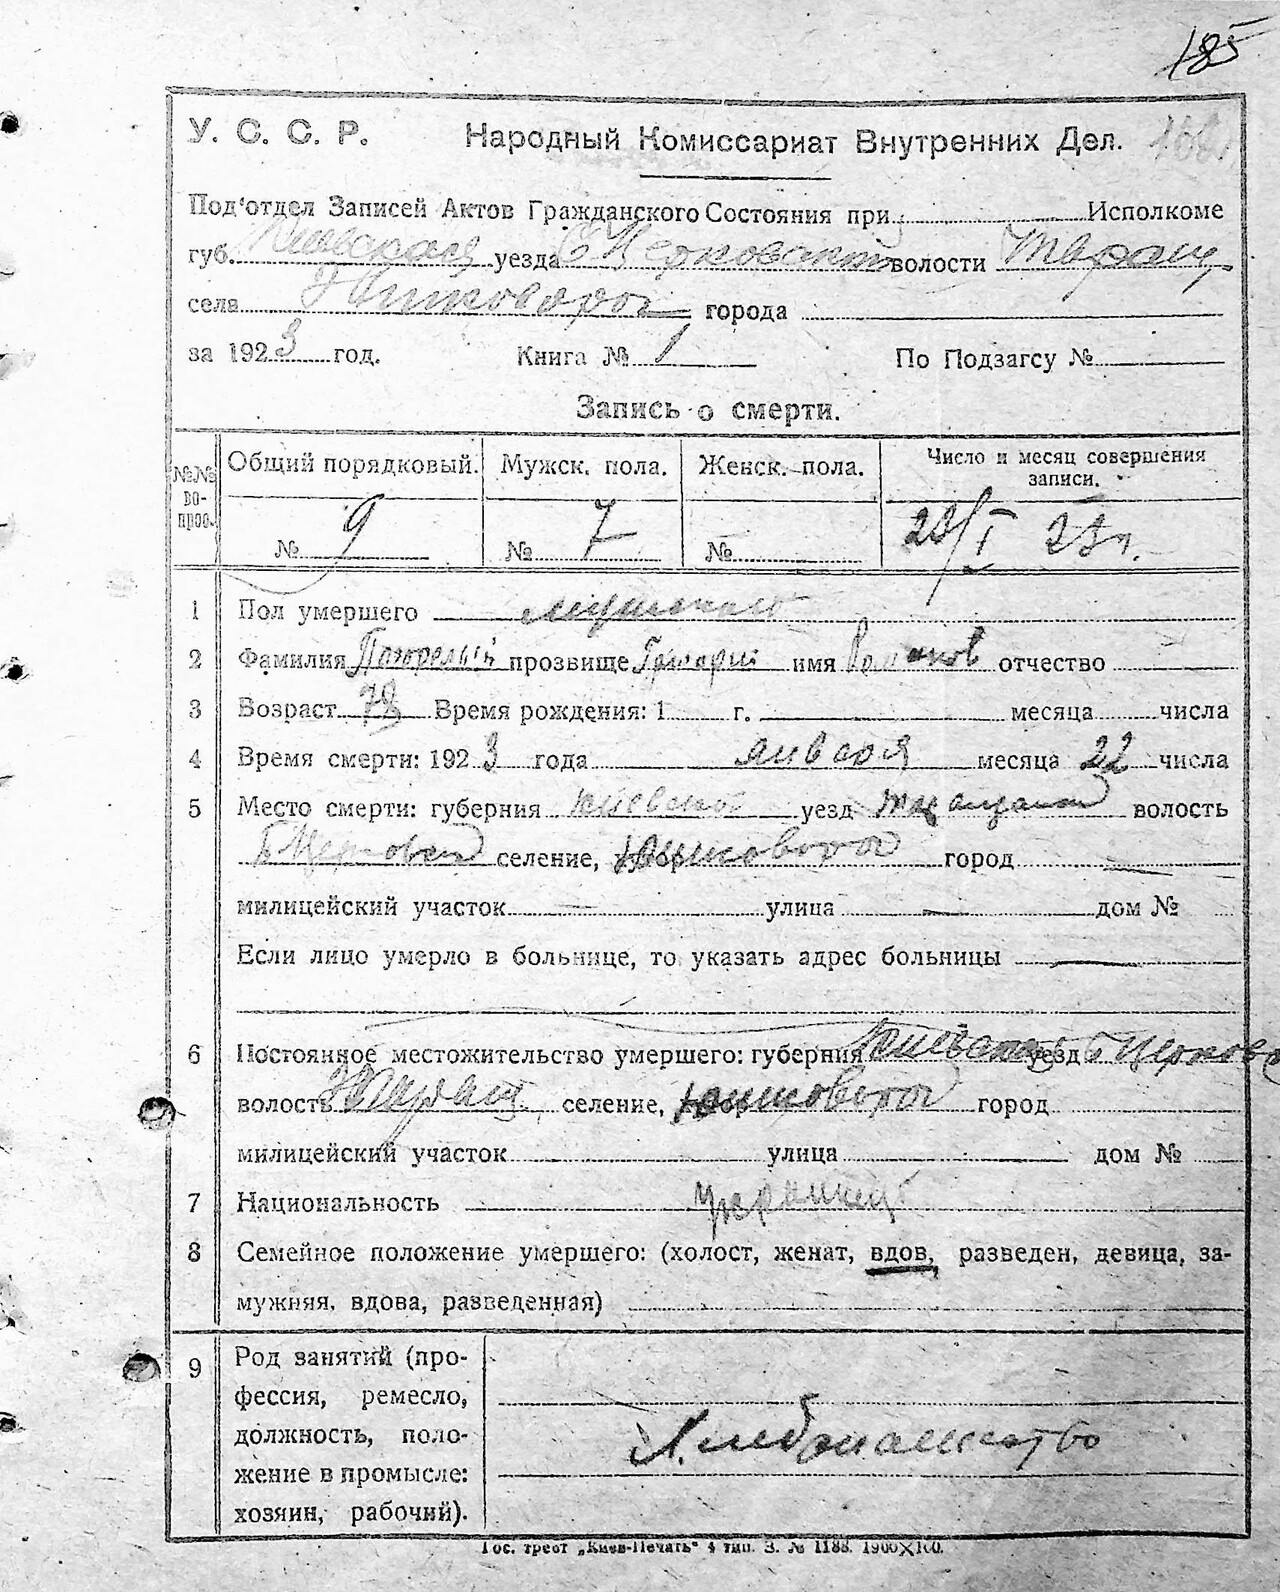 185
У. С. С. Р. Народный Комиссариат Внутренних Дел.
Под'отдел Записей Актов Гражданского Состояния при Исполкоме
губ. Киевская уезда Б Церковский волости
села Юшков Рог города
за 1923 год. Книга № 1 По Подзагсу №
Запись о смерти.
№№ вопрос. Общий порядковый. Мужск. пола. Женск. пола. Число и месяц совершения записи.
№ 9 № 7 № 23/I 23 г.
1 Пол умершего мужского
2 Фамилия Погорелый прозвище Григорий имя Романов отчество
3 Возраст 78 Время рождения: 1 г. месяца числа
4 Время смерти: 1923 года января месяца 22 числа
5 Место смерти: губерния Киевской уезд волость
Б Церковский селение, Юшков Рог город
милицейский участок — улица — дом №
Если лицо умерло в больнице, то указать адрес больницы —
6 Постоянное местожительство умершего: губерния Киевская уезд Б Церковс
волость селение, Юшков Рог город
милицейский участок улица дом №
7 Национальность Украинец
8 Семейное положение умершего: (холост, женат, вдов, разведен, девица, за-
мужняя, вдова, разведенная)
9 Род занятий (про-
фессия, ремесло,
должность, поло-
жение в промысле:
хозяин, рабочий).
Хлебопашество
Гос. трест „Киев-Печать" 4 тип. З. № 1188. 1900×100.